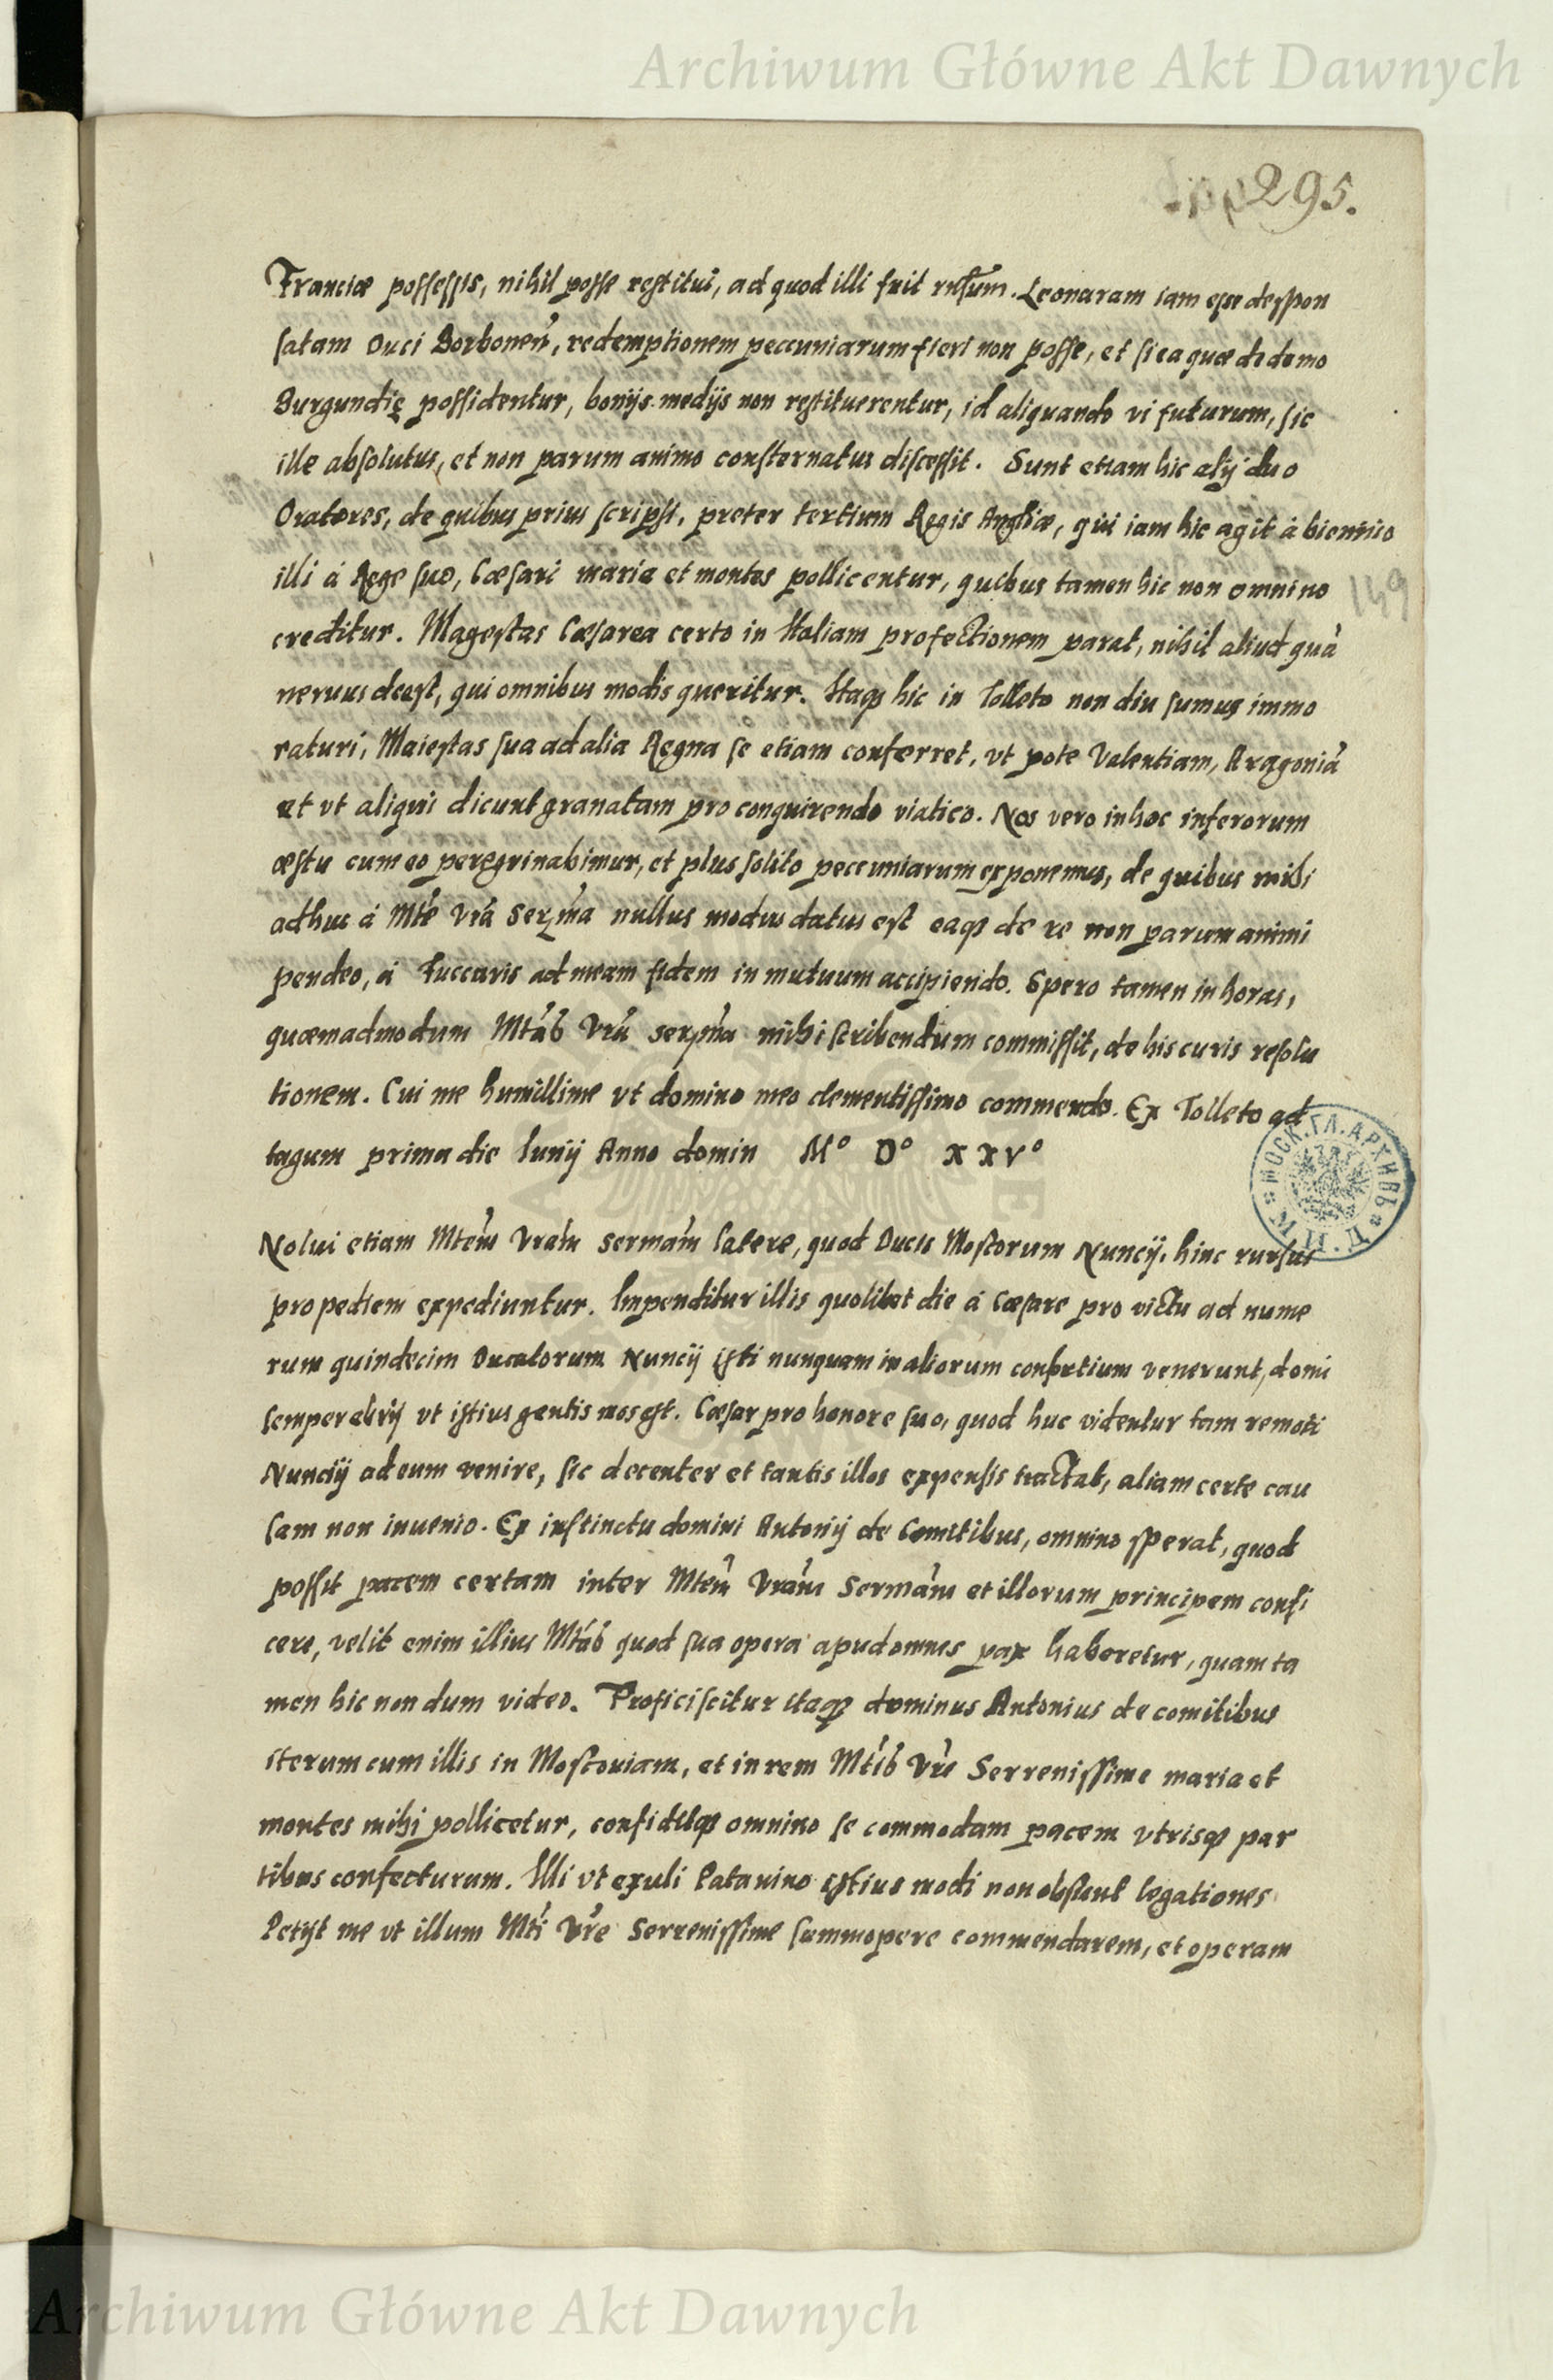 Archiwum Główne Akt Dawnych
295.
Franciæ possessis, nihil posse restitui, ad quod illi fuit rnsum. Leonaram iam esse despon
satam Duci Borboneñ, redemptionem peccuniarum fieri non posse, et si ea quæ de domo
Burgundię possidentur, bonijs medijs non restituerentur, id aliquando vi futurum, sic
ille absolutus, et non parum animo consternatus discessit. Sunt etiam hic alij duo
Oratores, de quibus prius scripsi, preter tertium Regis Angliæ, qui iam hic agit à biennio
illi á Rege suo, Cæsari maria et montes pollicentur, quibus tamen hic non omnino
149
creditur. Magestas Cæsarea certo in Italiam profectionem parat, nihil aliud quã
neruus deest, qui omnibus modis queritur. Itaqꝫ hic in Tolleto non diu sumus immo
raturi, Maiestas sua ad alia Regna se etiam conferret, vt pote Valentiam, Aragoniã
et vt aliqui dicunt granatam pro conquirendo viatico. Nos vero in hoc inferorum
æstu cum eo peregrinabimur, et plus solito peccuniarum exponemus, de quibus mihi
adhuc á Mte Vrã Serma nullus modus datus est eaqꝫ de re non parum animi
pendeo, á Fuccaris ad meam fidem in mutuum accipiendo. Spero tamen in horas,
quæmadmodum Mtas Vrã serma mihi scribendum commissit, de his curis resolu
tionem. Cui me humillime vt domino meo clementissimo commendo. Ex Tolleto ad
tagum prima die Iunij Anno domin M° D° XXV°
МОСК. ГЛ. АРХИВЪ
Nolui etiam Mtem Vram sermam latere, quod Ducis Moscorum Nuncij, hinc rursus
propediem expediuntur. Impenditur illis quolibet die á Cæsare pro victu ad nume
rum quindecim Ducatorum Nuncij isti nunquam in aliorum consortium venerunt, domi
semper ebrij vt istius gentis mos est. Cæsar pro honore suo, quod huc videntur tam remoti
Nuncij ad eum venire, sic decenter et tantis illos expensis tractat, aliam certe cau
sam non inuenio. Ex instinctu domini Antonij de Comitibus, omnino sperat, quod
possit pacem certam inter Mtem Vram Sermam et illorum principem confi
cere, velit enim illius Mtas quod sua opera apud omnes pax haberetur, quam ta
men hic non dum video. Proficiscitur itaqꝫ dominus Antonius de comitibus
iterum cum illis in Moscouiam, et in rem Mtis Vre Serrenissime maria et
montes mihi pollicetur, confiditqꝫ omnino se commodam pacem vtrisqꝫ par
tibus confecturum. Illi vt exuli Patauino istius modi non obsunt legationes
Petijt me vt illum Mti Vre Serrenissime summopere commendarem, et operam
Archiwum Główne Akt Dawnych